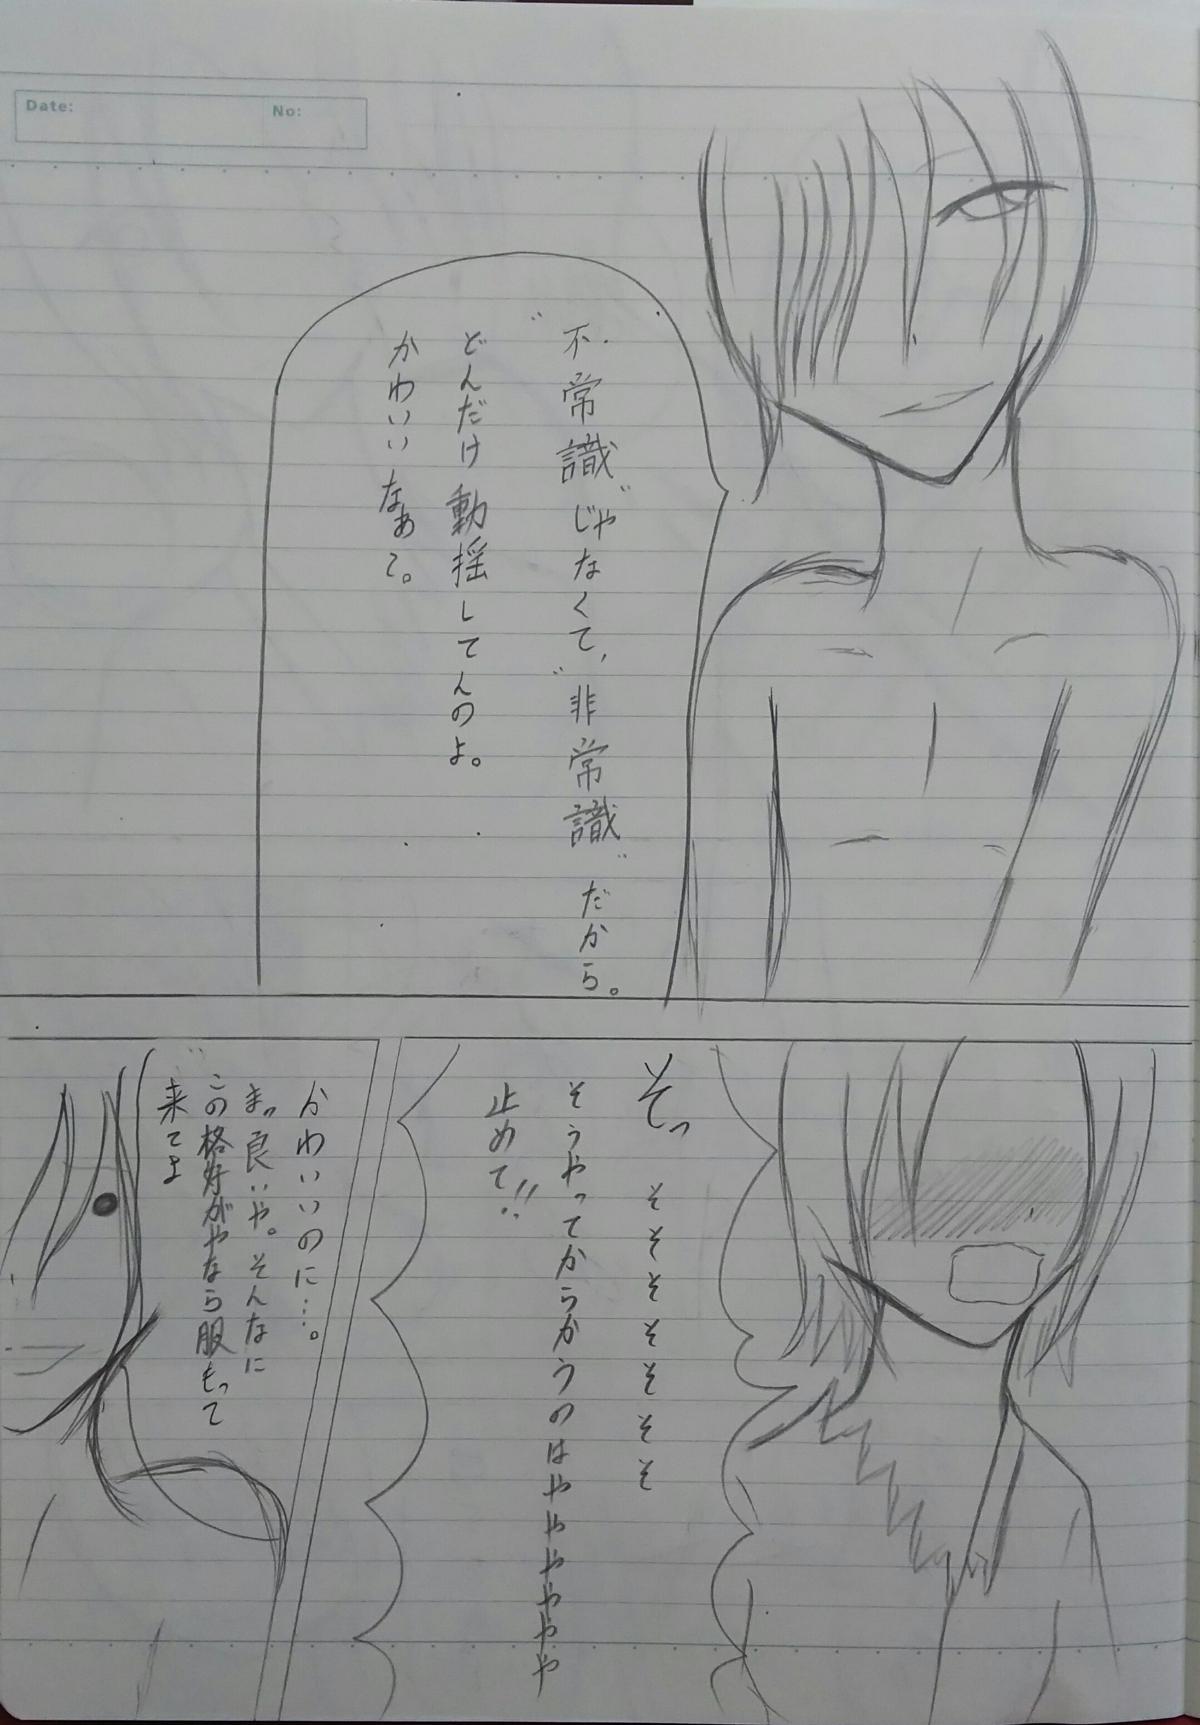 Date:
No:
“不常識”じゃなくて、“非常識”だから。
どんだけ動揺してんのよ。
かわいいなぁ〜。
そっ
そそそそそそそ
そうやってからかうのはややややややや
止めて!!
かわいいのに…。
まっ良いや。そんなに
この格好がやなら服もって
来てよ